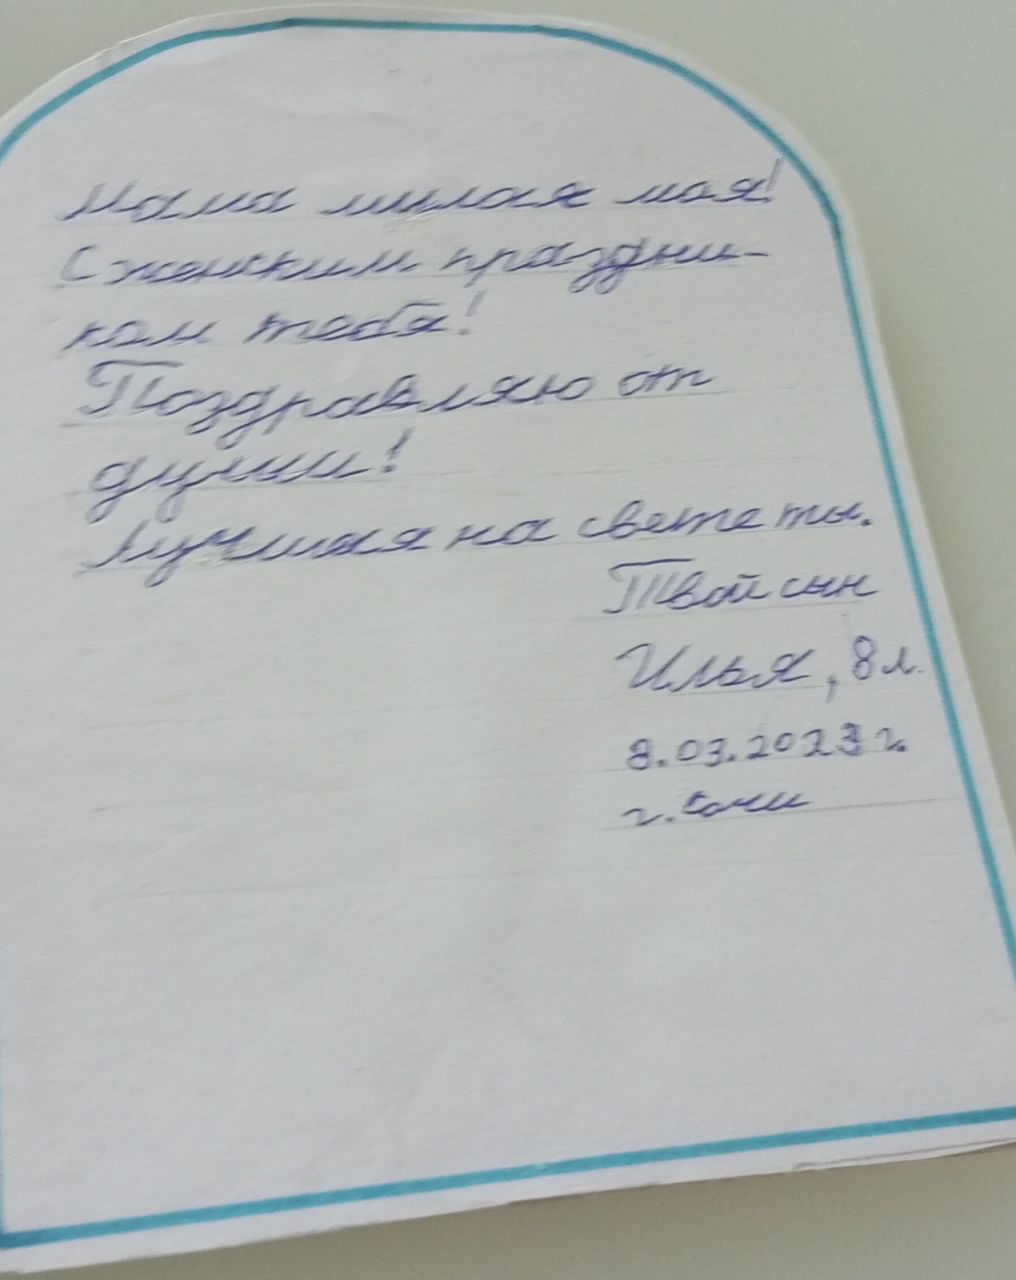 Мама милая моя!
С женским праздни-
ком тебя!
Поздравляю от
души!
Лучшая на свете ты.
Твой сын
Илья, 8 л.
8.03.2023 г.
г. Сочи